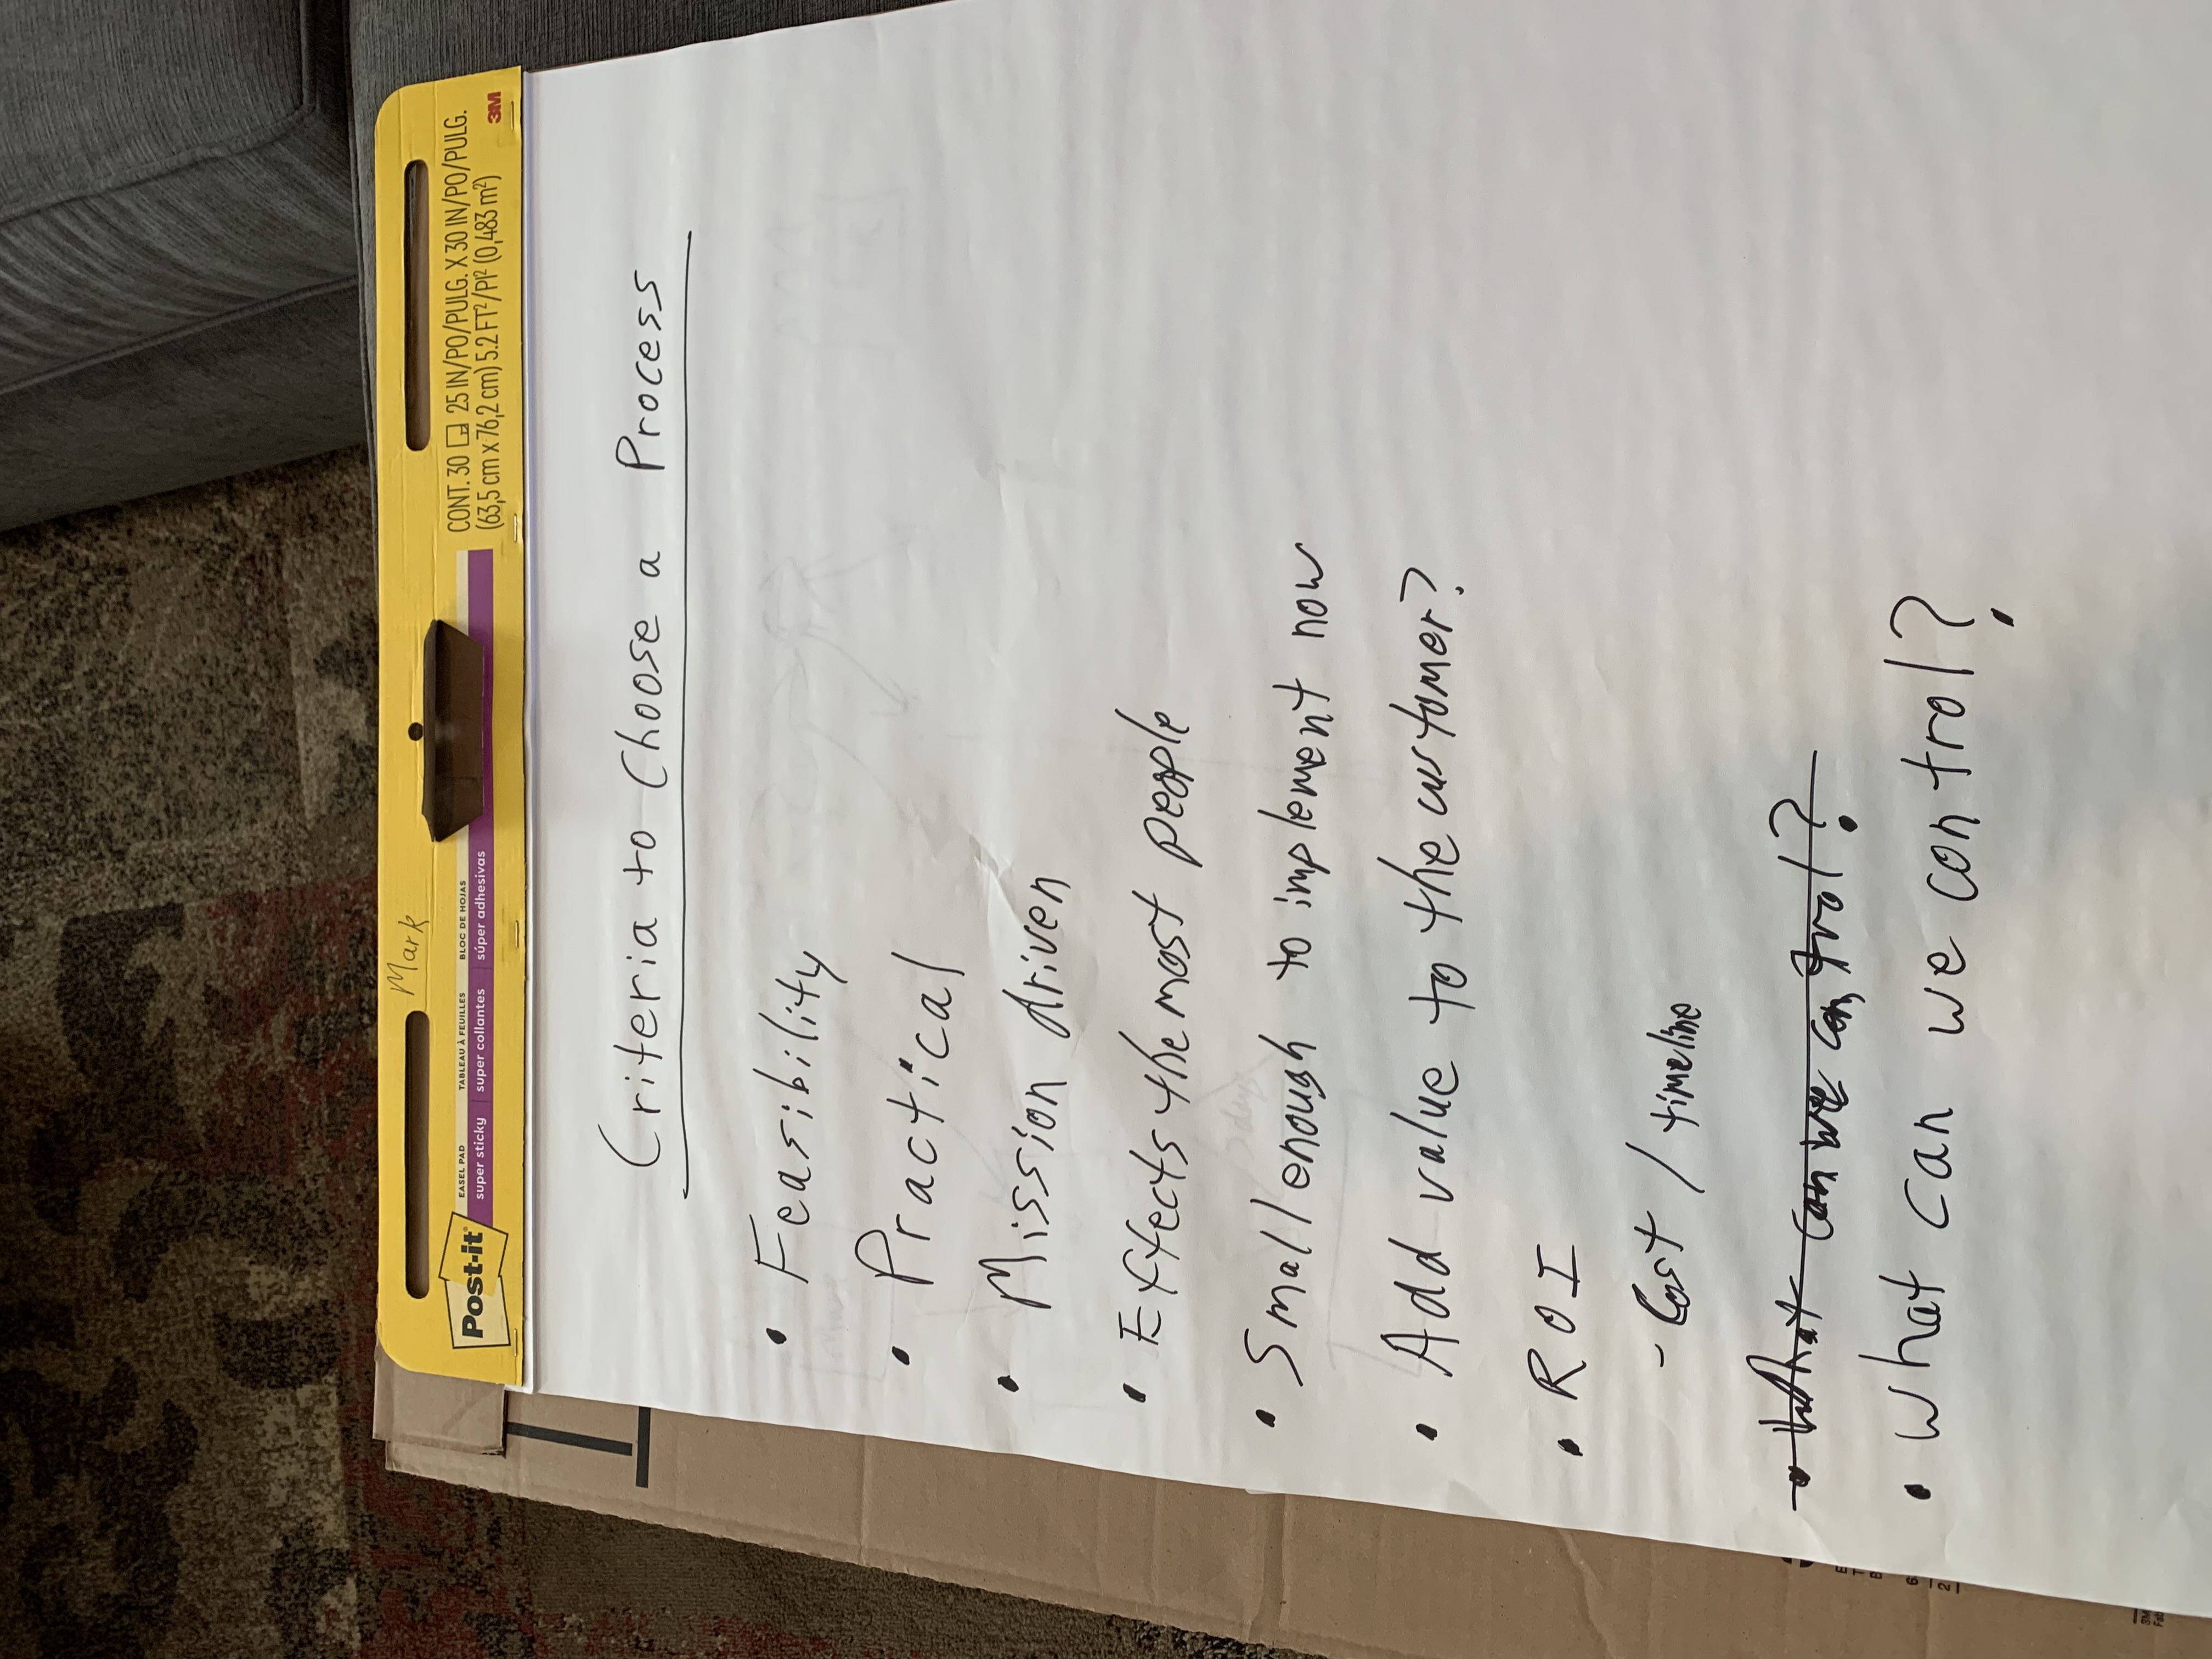 Mark
CONT. 30 25 IN/PO/PULG. X 30 IN/PO/PULG.
(63,5 cm x 76,2 cm) 5.2 FT²/PI² (0,483 m²)
3M
Post-it
EASEL PAD TABLEAU À FEUILLES BLOC DE HOJAS
super sticky super collantes súper adhesivas
Criteria to Choose a Process
• Feasibility
• Practical
• Mission driven
• Effects the most people
• Small enough to implement now
• Add value to the customer?
• ROI
- Cost / timeline
• What can we control?
• What can we control?